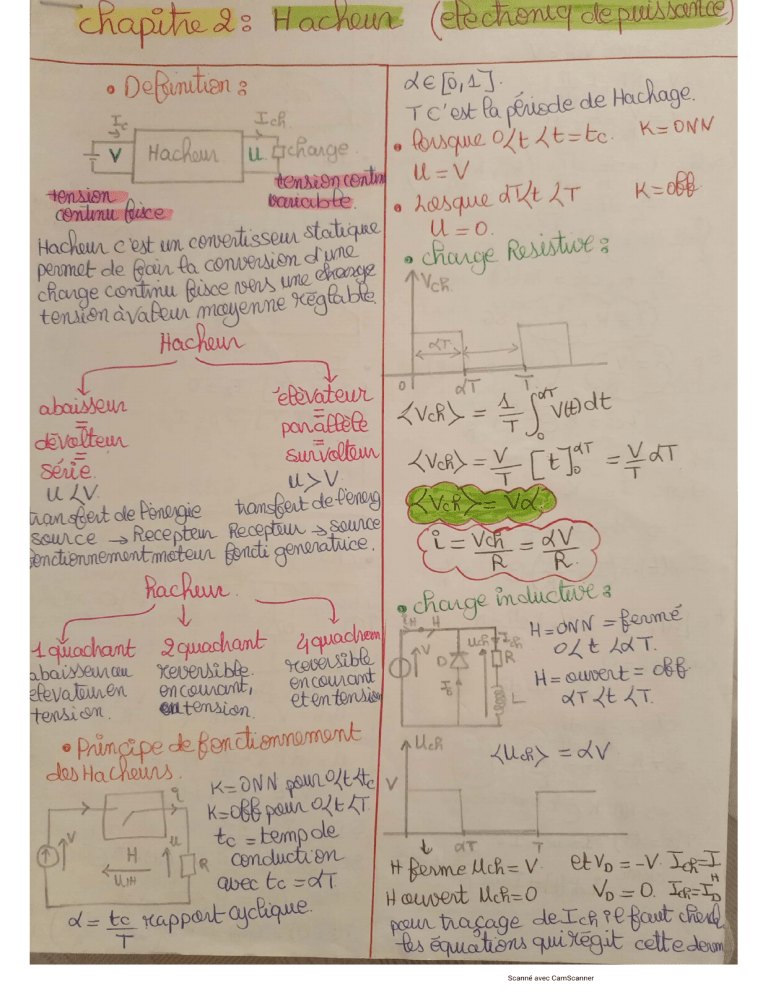 chapitre 2: Hacheur (electroniq de puissance)
• Definition:
Ic
Ich
V
Hacheur
U
charge
tension
continu fisce
tension contin
variable.
Hacheur c'est un convertisseur statique
permet de fair la conversion d'une
charge continu fisce vers une charge
tension à valeur moyenne réglable
Hacheur
abaisseur
=
dévolteur
=
série.
U<V.
transfert de l'énergie
source → Recepteur
fonctionnement moteur
élévateur
=
parallèle
=
survolteur
U>V.
transfert de l'energ
Recepteur → source
foncti generatrice.
hacheur.
1 quachant
abaisseur ou
elevateur en
tension.
2 quachant
reversible
en courant,
ou tension.
4 quachrem
reversible
en courant
et en tension
• Principe de fonctionnement
des Hacheurs.
i
V
H
UH
u
R
K=ONN pour 0<t<tc
K=off pour 0<t<T.
tc = temp de
conduction
avec tc = αT
α = tc/T rapport cyclique.
α∈[0,1].
T c'est la période de Hachage.
• lorsque 0<t<t=tc. K=ONN
U=V
• Losque αT<t<T K=off
U=0.
• charge Resistive:
Vch
αT
0 αT T
<Vch> = 1/T ∫₀^αT V(t)dt
<Vch> = V/T [t]₀^αT = V/T αT
<Vch> = Vα
i = Vch/R = αV/R.
• charge inductive:
iH H
V
D
Uch
Ich
R
L
H=ONN=fermé
0<t<αT.
H=ouvert=off
αT<t<T.
Uch
<Uch> = αV
V
αT T
H ferme Uch=V. et VD=-V. Ich=IH
H ouvert Uch=0 VD=0. Ich=ID
pour traçage de Ich il faut cherch
les équations qui régit cette dern
Scanné avec CamScanner